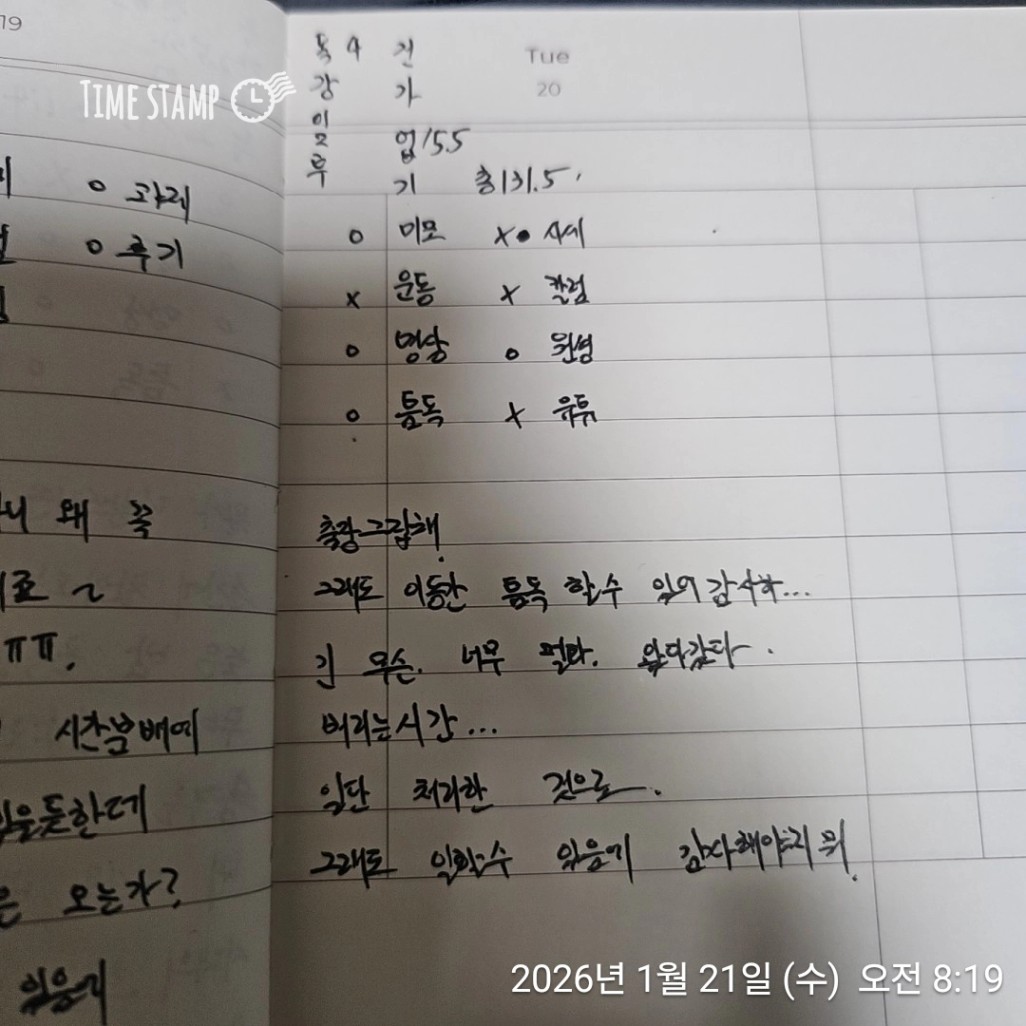 19
TIME STAMP
Tue
20
목 4 건
강 가
일 업/5.5
루 기 총131.5
o 과제
o 후기
o 미모 x 시세
x 운동 x 칼럼
o 명상 o 원씽
o 틈독 x 유튜
왜 꼭
ㅠㅠ.
시간분배에
있을듯한데
오는가?
있음기
출장그럽해.
그래도 이동간 틈독 할수 있어 감사하...
긴 무슨. 너무 멀다. 왔다갔다.
버리는시간...
일단 처리한 것으로.
그래도 일할수 있음에 감사해야지 뭐.
2026년 1월 21일 (수) 오전 8:19